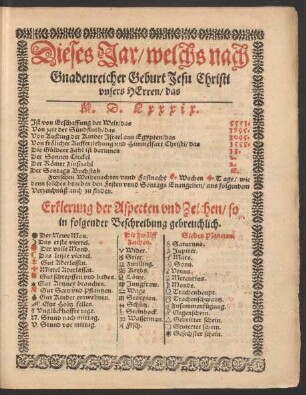 Dieses Jar/ welchs nach
Gnadenreicher Geburt Jesu Christi
vnsers HErren/ das
M. D. Lxxxix.
Ist von Erschaffung der Welt/ das
Von zeit der Sündfluth/ das
Von Außzug der Kinder Israel aus Egypten/ das
Von frölicher Aufferstehung vnd Himmelfart Christi/ das
Die Güldene Zahl ist hierinnen
Der Sonnen Circkel
Der Römer Zinßzahl
Der Sontags Buchstab
Zwischen Weihenachten vnd Fastnacht Wochen Tage/ wie
denn solches sampt den Festen vnnd Sontags Euangelien/ aus folgendem
Verzeichnüß auch zu finden.
Erklerung der Aspecten vnd Zeichen/ so
in folgender Beschreibung gebreuchlich.
Der Newe Mon.
Das erste viertel.
Der volle Mond.
Das letzte viertel.
Gut Aderlassen.
Mittel Aderlassen.
Gut schrepffen und baden.
Gut Artzney brauchen.
Gut Seen vnd Pflantzen
Gut Kinder entwehnen.
Gut Holtz fellen.
Vnglückhaffte tage.
N. Stund nach mittag.
V. Stund vor mittag.
Die zwölff
Zeichen.
Wider.
Stier.
Zwilling.
Krebs.
Löwe.
Jungfraw.
Wage.
Scorpion.
Schütz.
Steinbock.
Wasserman.
Fisch.
Sieben Planeten.
Saturnus.
Jupiter.
Mars.
Sonn.
Venus.
Mercurius.
Monds.
Drachenhaupt.
Drachenschwantz.
Zusammenfügung.
Gegenschein.
Gedritter schein.
Gevierter schein.
Gesechster schein.